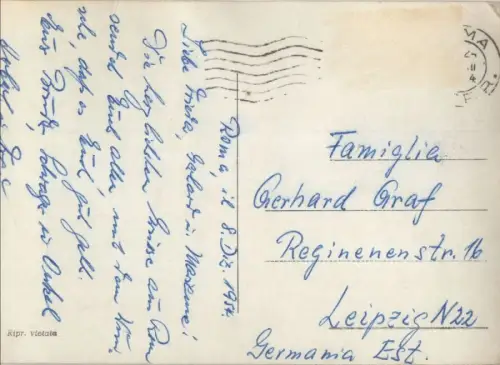 Roma il 8. Dez. 1954.
Liebe Frieda, Gerhard u. Marianne!
Die herzlichsten Grüsse aus Rom
sendet Euch allen, mit dem Wun-
sche, dass es Euch gut geht.
Eure Schwager u. Onkel
Famiglia
Gerhard Graf
Reginenenstr. 16
Leipzig N22
Germania Est.
Ripr. vietata
ROMA